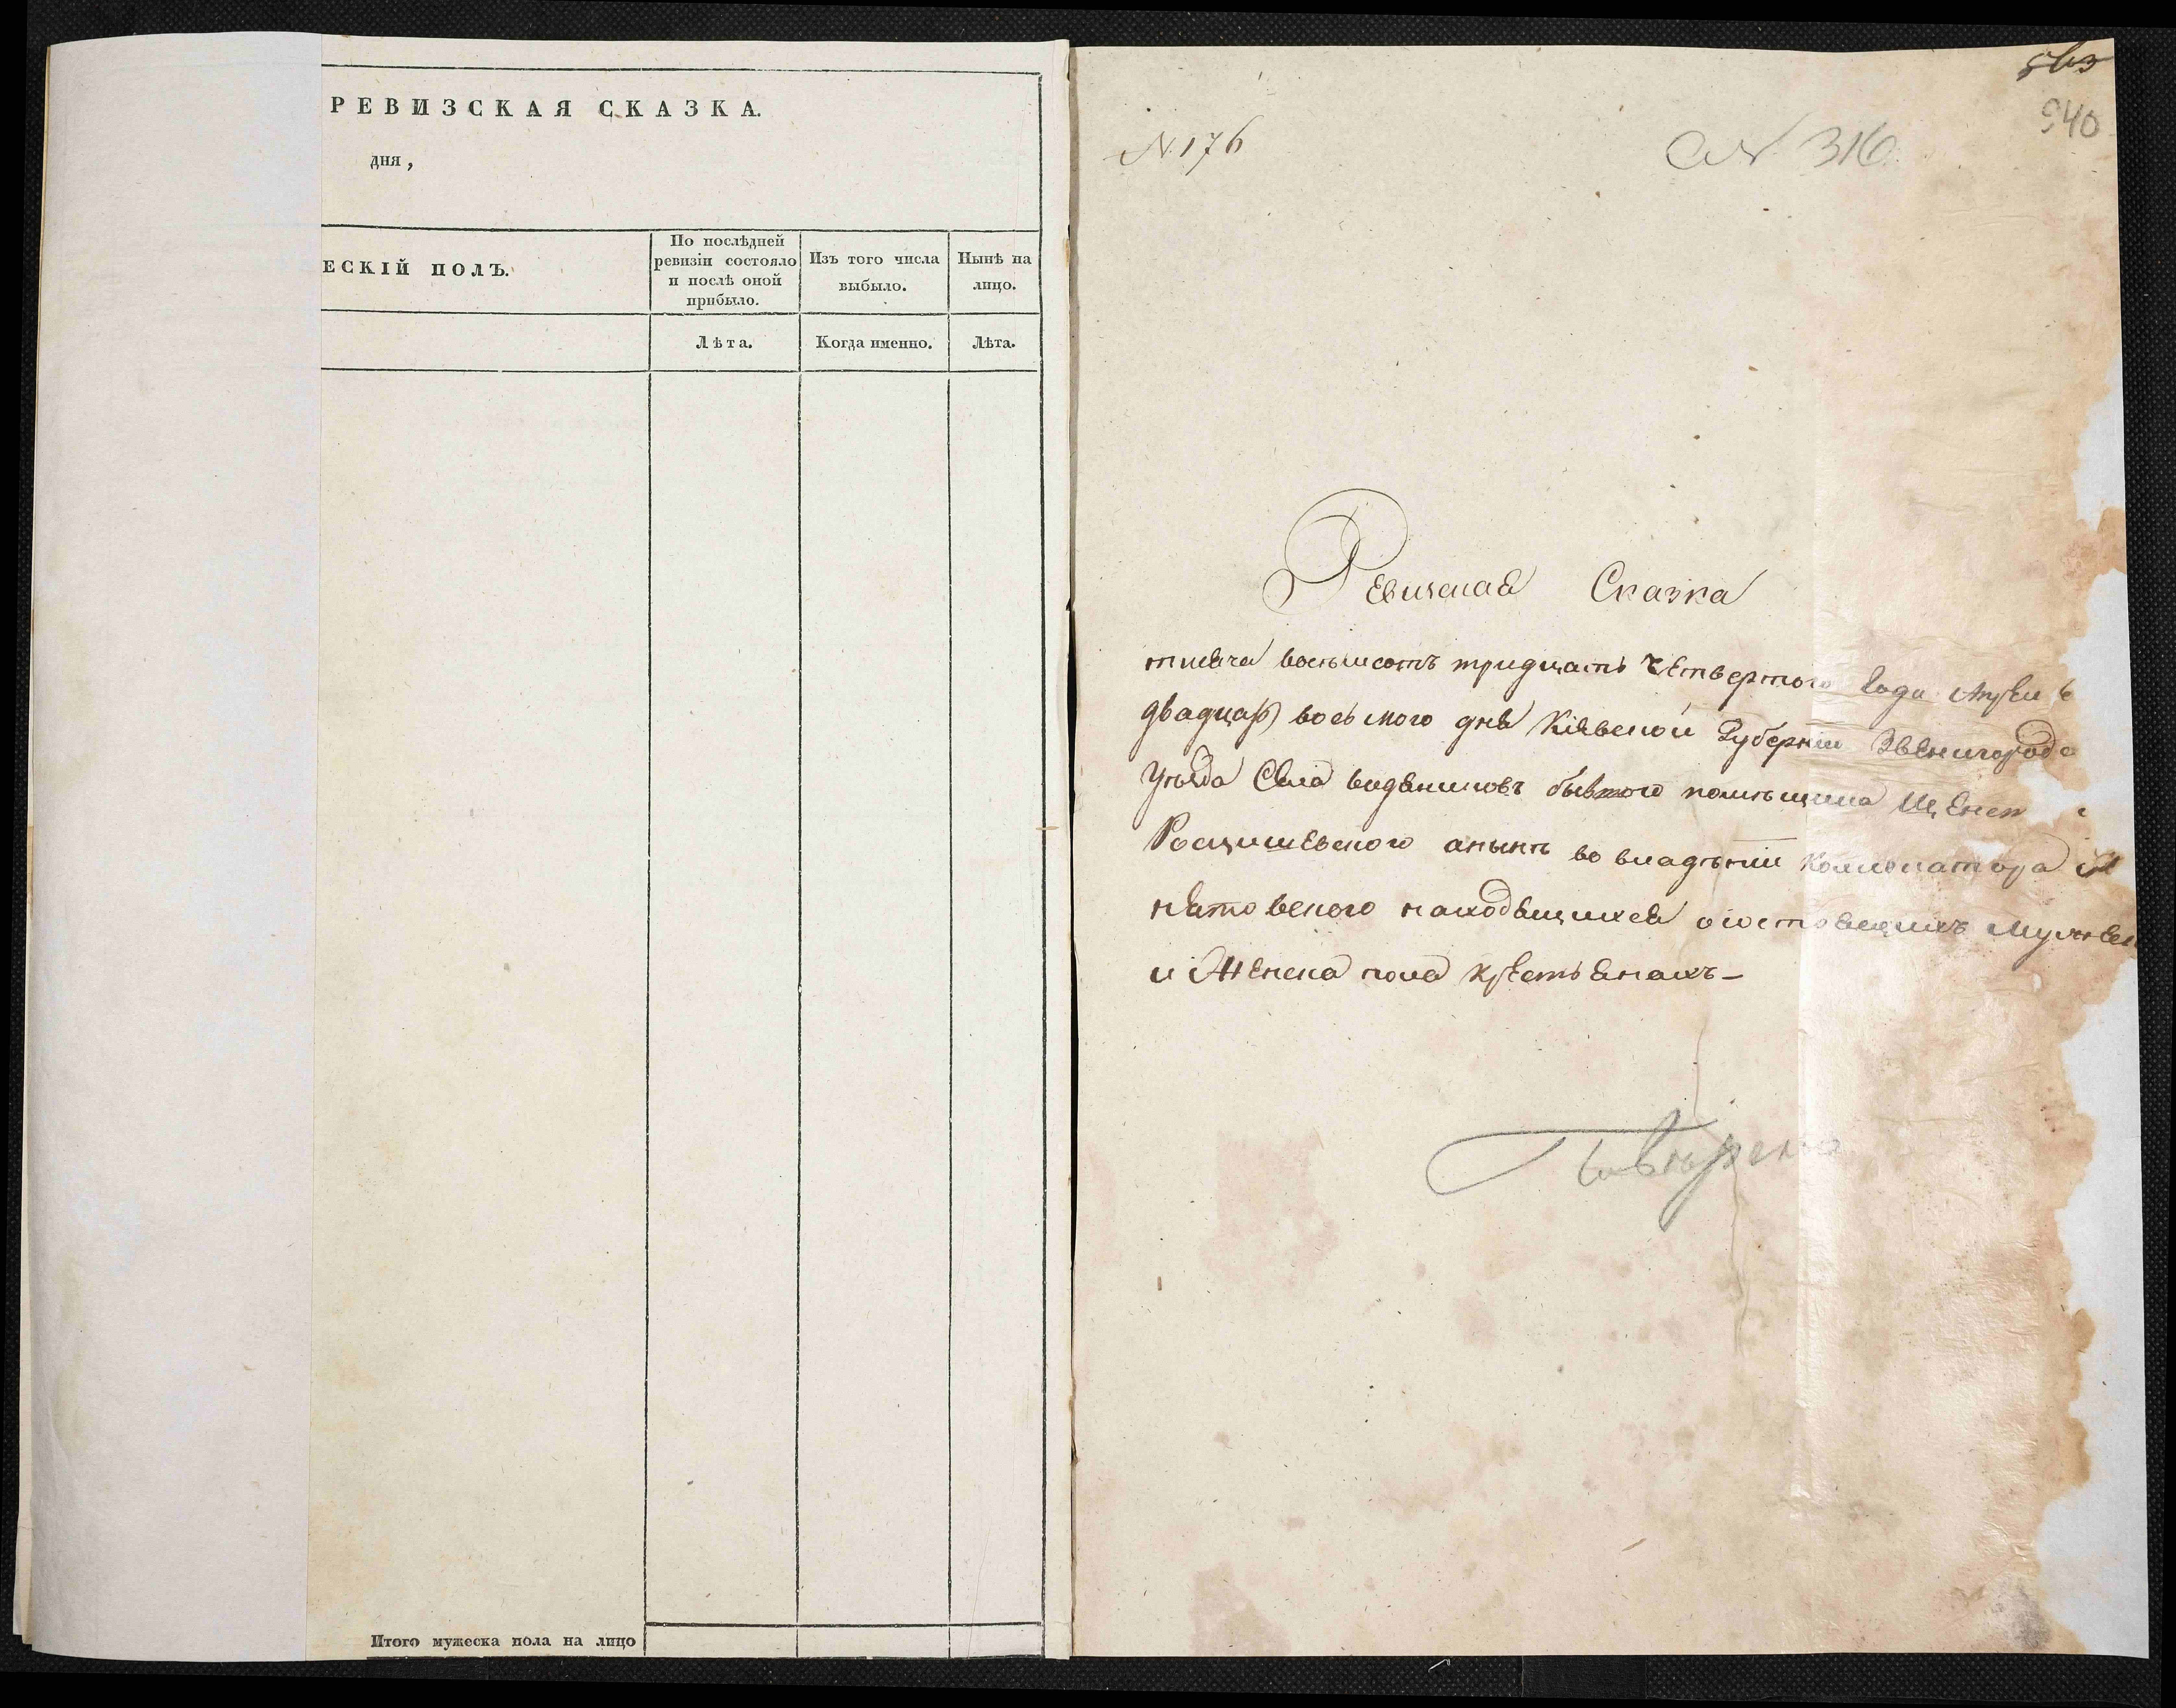 РЕВИЗСКАЯ СКАЗКА.
дня,
ЕСКІЙ ПОЛЪ.
По послѣдней
ревизіи состояло
и послѣ оной
прибыло.
Изъ того числа
выбыло.
Нынѣ на
лицо.
Лѣта.
Когда именно.
Лѣта.
Итого мужеска пола на лицо
563
940
N. 176
N 316.
Ревизская Сказка
тисяча восъмсотъ тридцать Четвертого Года Апрел
двадцат восьмого дня Кіевской Губерніи Звенигородс
Уѣзда Села водяниковъ бывшого помѣщика
Росцишевского анынѣ во владѣніи
нятовского находящихся осостоящихъ Мужеск
и Женска пола крестьянахъ-